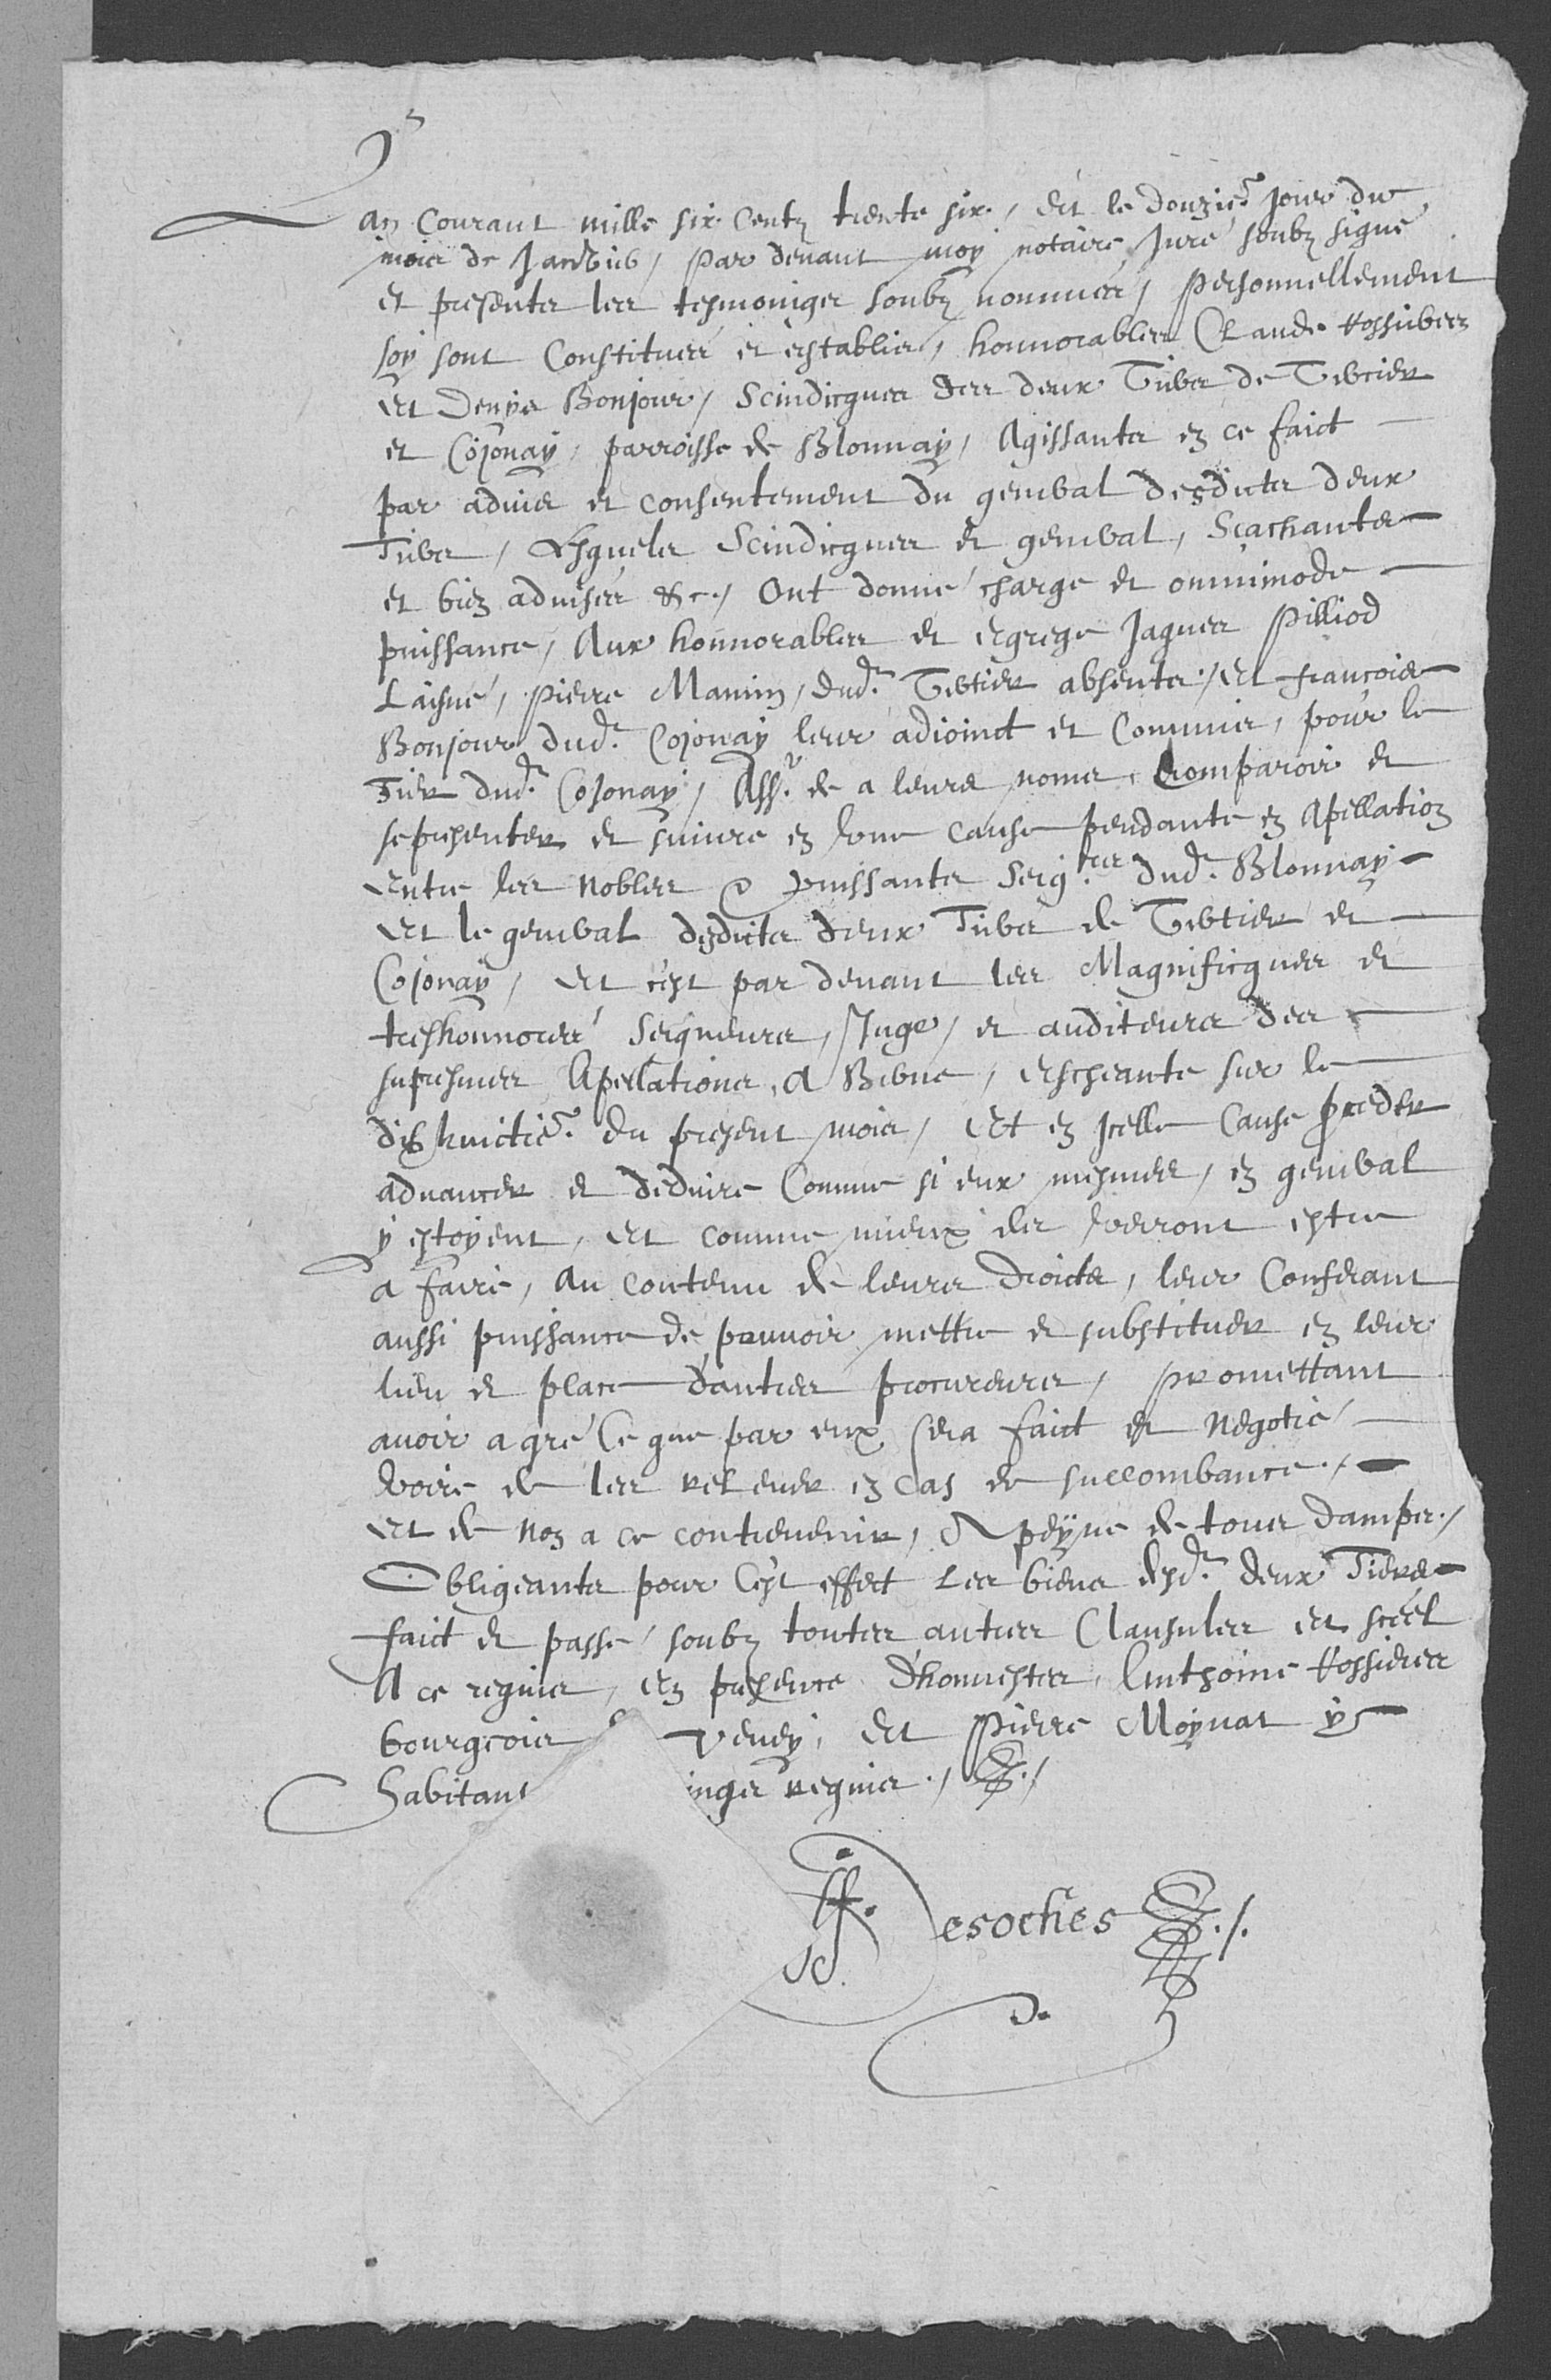 L'an Courant mille six Centz trente six, Et le douzie.e Jour du
mois de Janvier, Par devant moy notaire Juré soubz signé
et presents les tesmoings soubz nommés, Personnellement
soy sont Constitués et establis, honnorables Claude Rossier
Et Denys Bonjour, Scindicques des deux Tiers de Tercier
et Cojonay, parroisse de Blonnay, Agissants en ce faict
par advis et consentement du general desdicts deux
Tiers, Lesquels Scindicques et general, Scachants
et bien advisés &c., Ont donné charge et omnimode
puissance, Aux honnorables et egrege Jaques Pilliod
Laisné, Pierre Mamin, dud.t Tertier absents, Et françois
Bonjour dud.t Cojonay leur adioinct et Commis, pour le
Tier dud.t Cojonay, Ass.r de a leurs noms, Comparoir et
se presenter et suivre en leur cause pendante en Apellation
entre les Nobles & puissants Seig.rs dud.t Blonnay
Et le general desdicts deux Tiers de Tertier et
Cojonay, Et c'est par devant les Magnificques et
treshonnorés Seigneurs, Juge, et auditeurs des
supresmes Apellations, A Berne, escheante sur le
dix huictie.e du present mois, Et en Icelle Cause preder
advancer et deduire Comme si eux mesmes, en general
y estoyent, Et comme mieux ils verront estre
a faire, Au contenu de leurs droicts, leur Conferant
aussi puissance de pouvoir mettre et substituer en leur
lieu et place d'autres procureurs, Promettant
avoir a gré Ce que par eux sera faict et negotié
voire de les relever en cas de succombance.
Et de non a ce contrevenir, A peyne de tous damps.
Obligeants pour Cest effect Les biens desd.t deux Tiers
faict et passé soubz toutes autres Clausules et scéel
A ce requis, en presence d'honnestes Anthoine Rossier
bourgeois Vevey, Et Pierre Moynat y
habitant inges requis.
Desoches